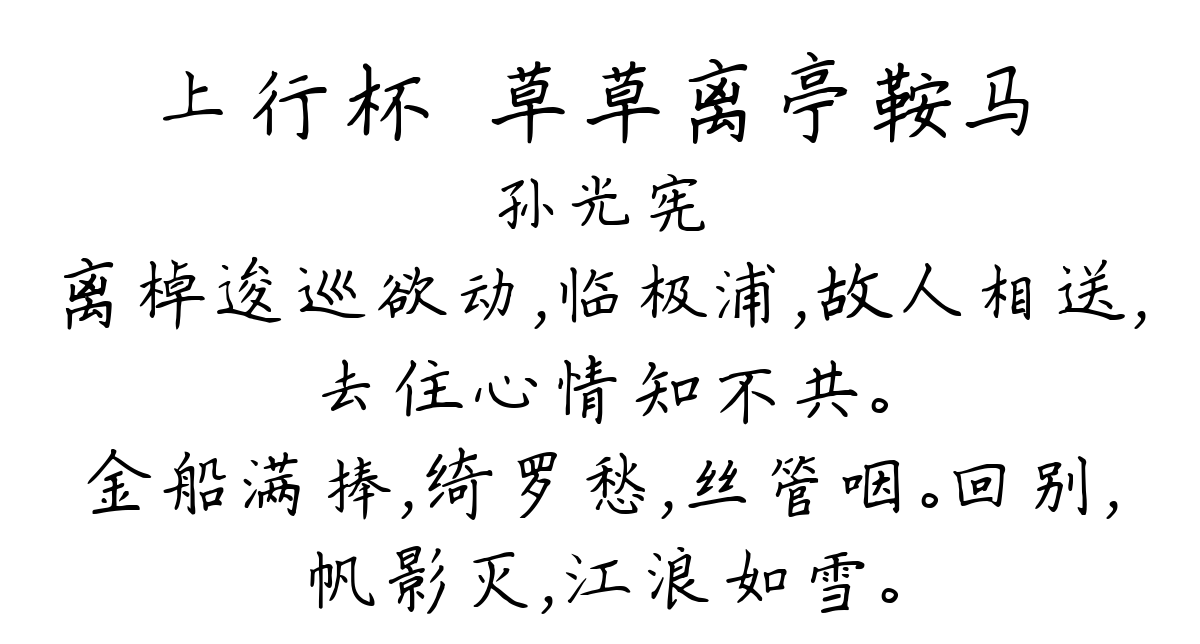 上行杯 草草离亭鞍马
孙光宪
离棹逡巡欲动,临极浦,故人相送,
去住心情知不共。
金船满捧,绮罗愁,丝管咽。回别,
帆影灭,江浪如雪。